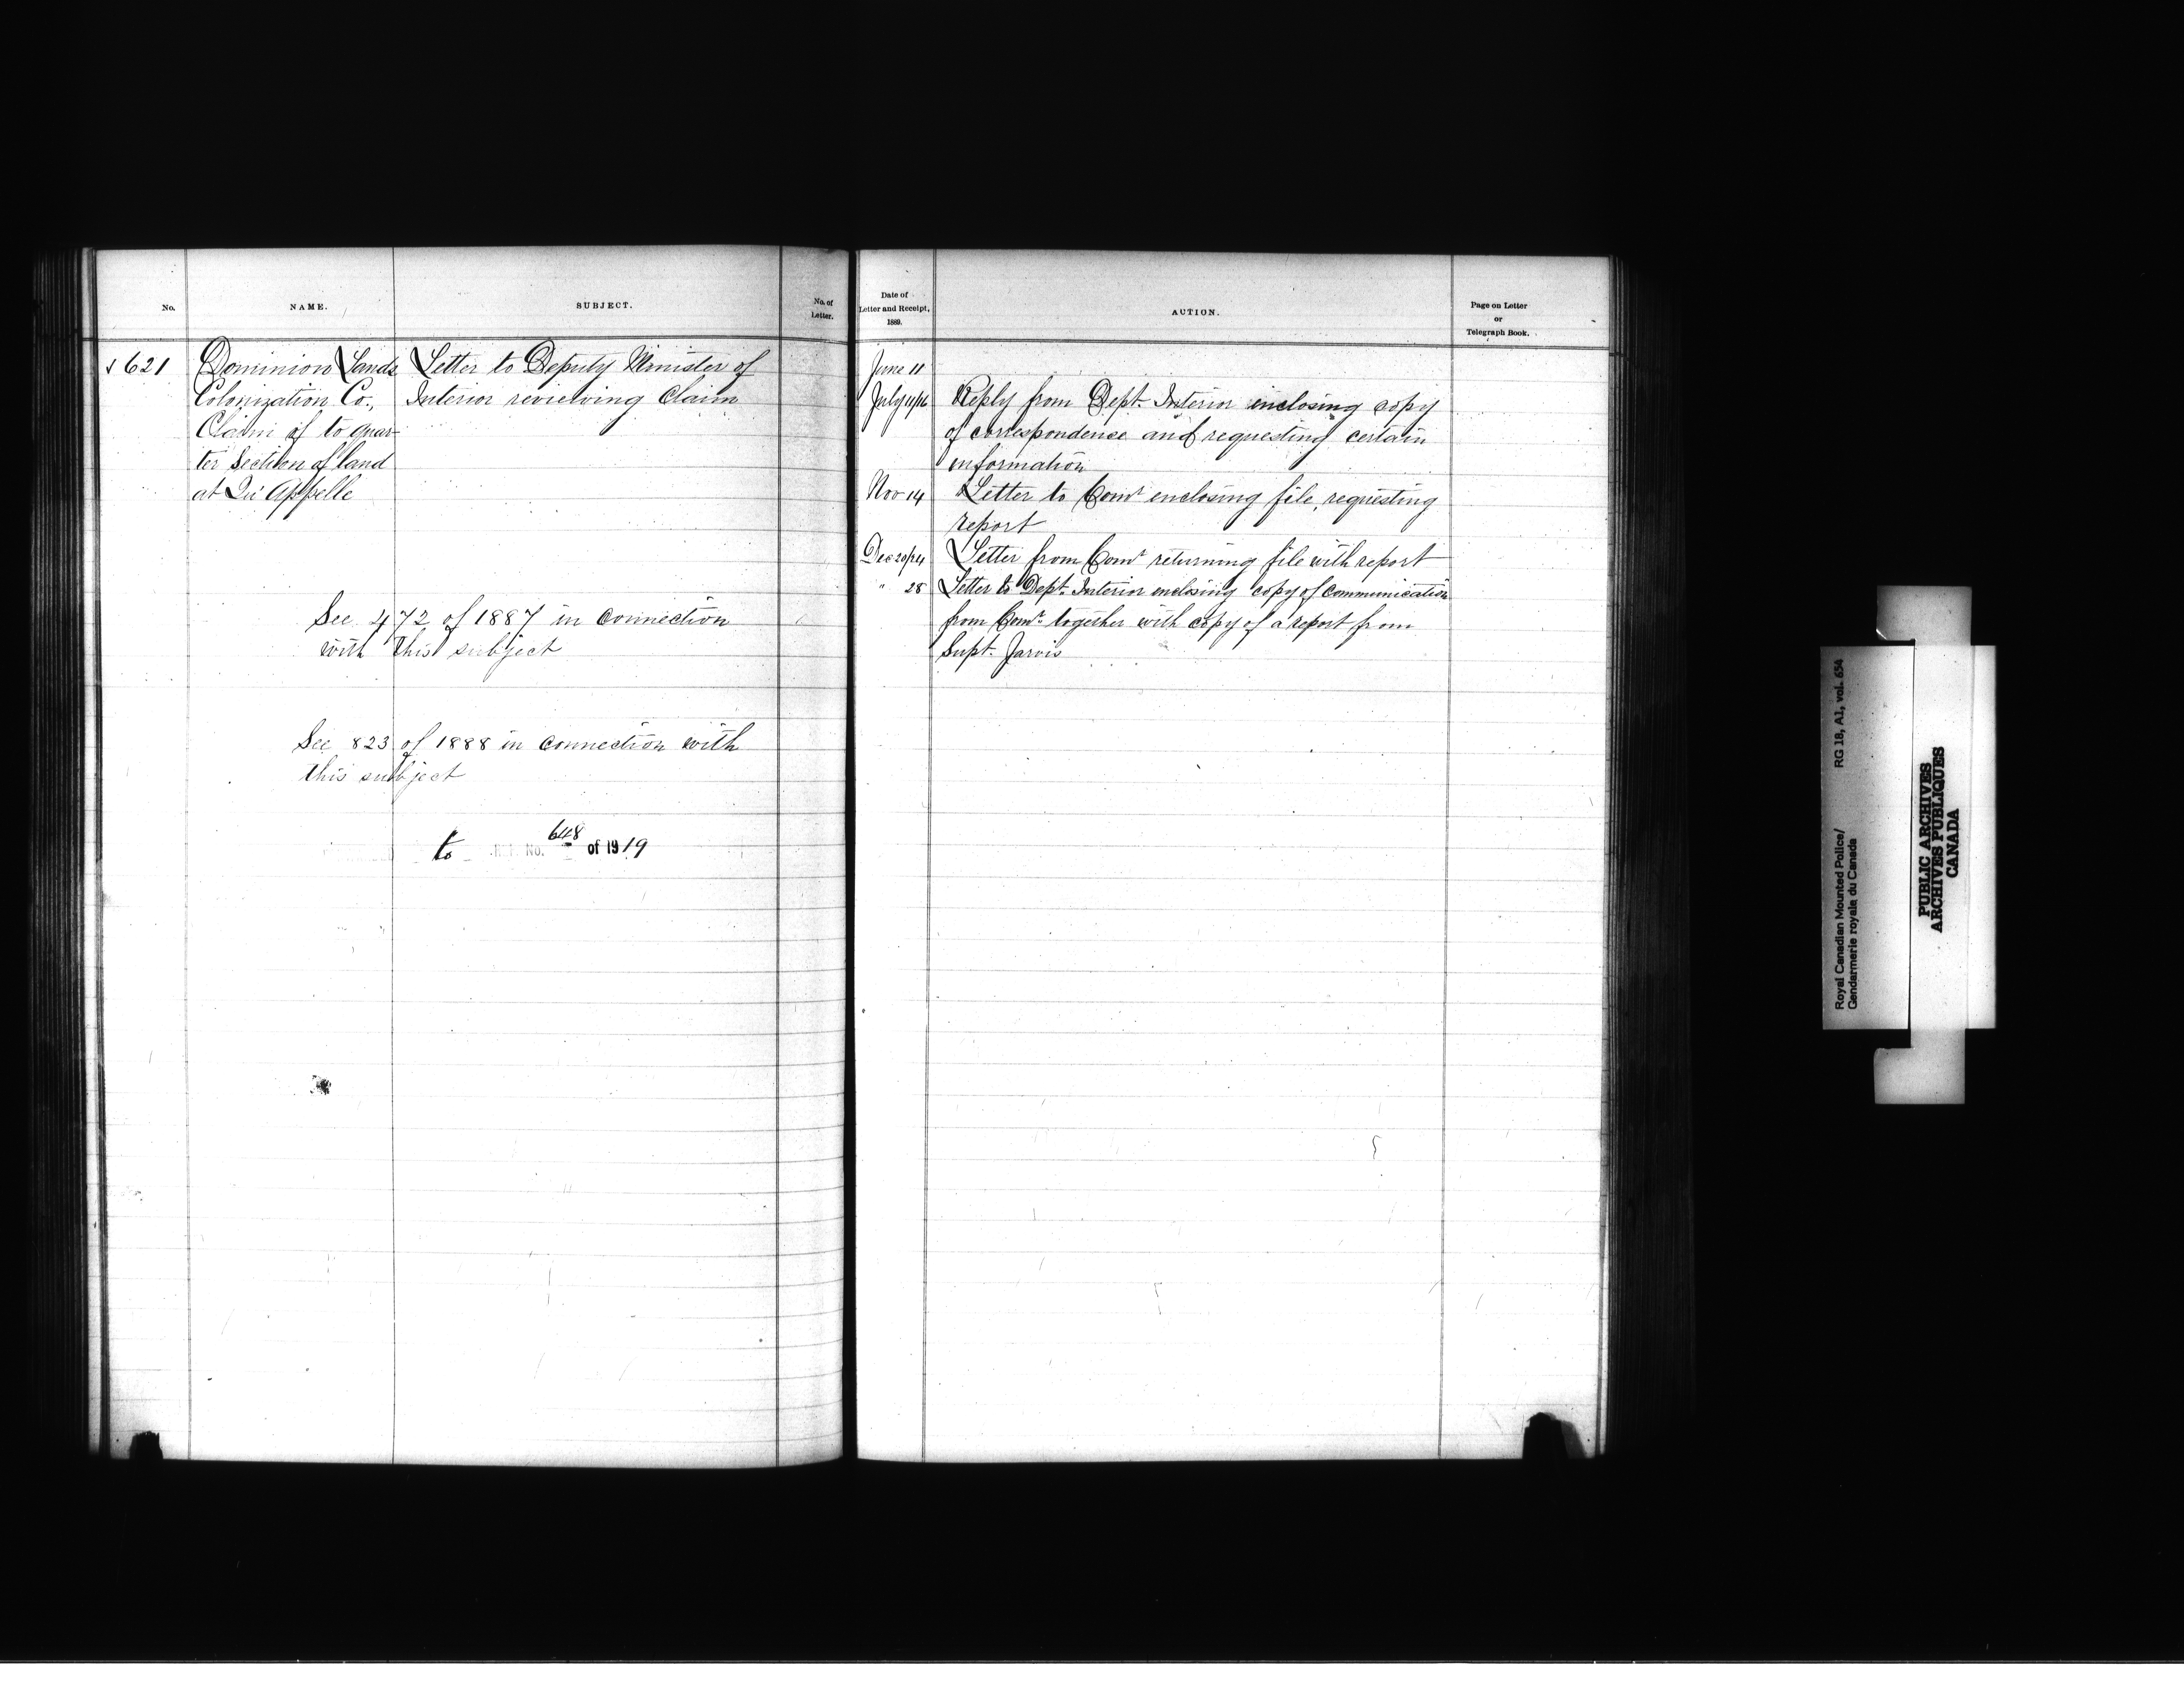 No.
NAME.
SUBJECT.
No. of
Letter.
621
Dominion Lands
Colonization Co.,
Claim of to quar-
ter Section of land
at Qu'Appelle
Letter to Deputy Minister of
Interior reviewing Claim
See 472 of 1887 in connection
with this subject
See 823 of 1888 in connection with
this subject
to No. 648 of 1919
Date of
Letter and Receipt,
1889.
ACTION.
Page on Letter
or
Telegraph Book.
June 11
July 11/16 Reply from Dept. Interior enclosing copy
of correspondence and requesting certain
information
Nov 14 Letter to Comr enclosing file, requesting
report
Dec 20/24 Letter from Comr returning file with report
" 28 Letter to Dept. Interior enclosing copy of communication
from Comr. together with copy of a report from
Supt. Jarvis
Royal Canadian Mounted Police/ RG 18, A1, vol. 654
Gendarmerie royale du Canada
PUBLIC ARCHIVES
ARCHIVES PUBLIQUES
CANADA